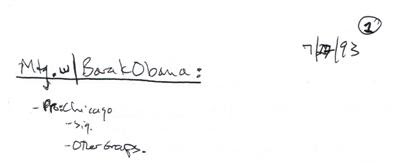 2
7/27/93
Mtg. w/ Barak Obama:
- Pro: Chicago
- Sig.
- Other Groups.